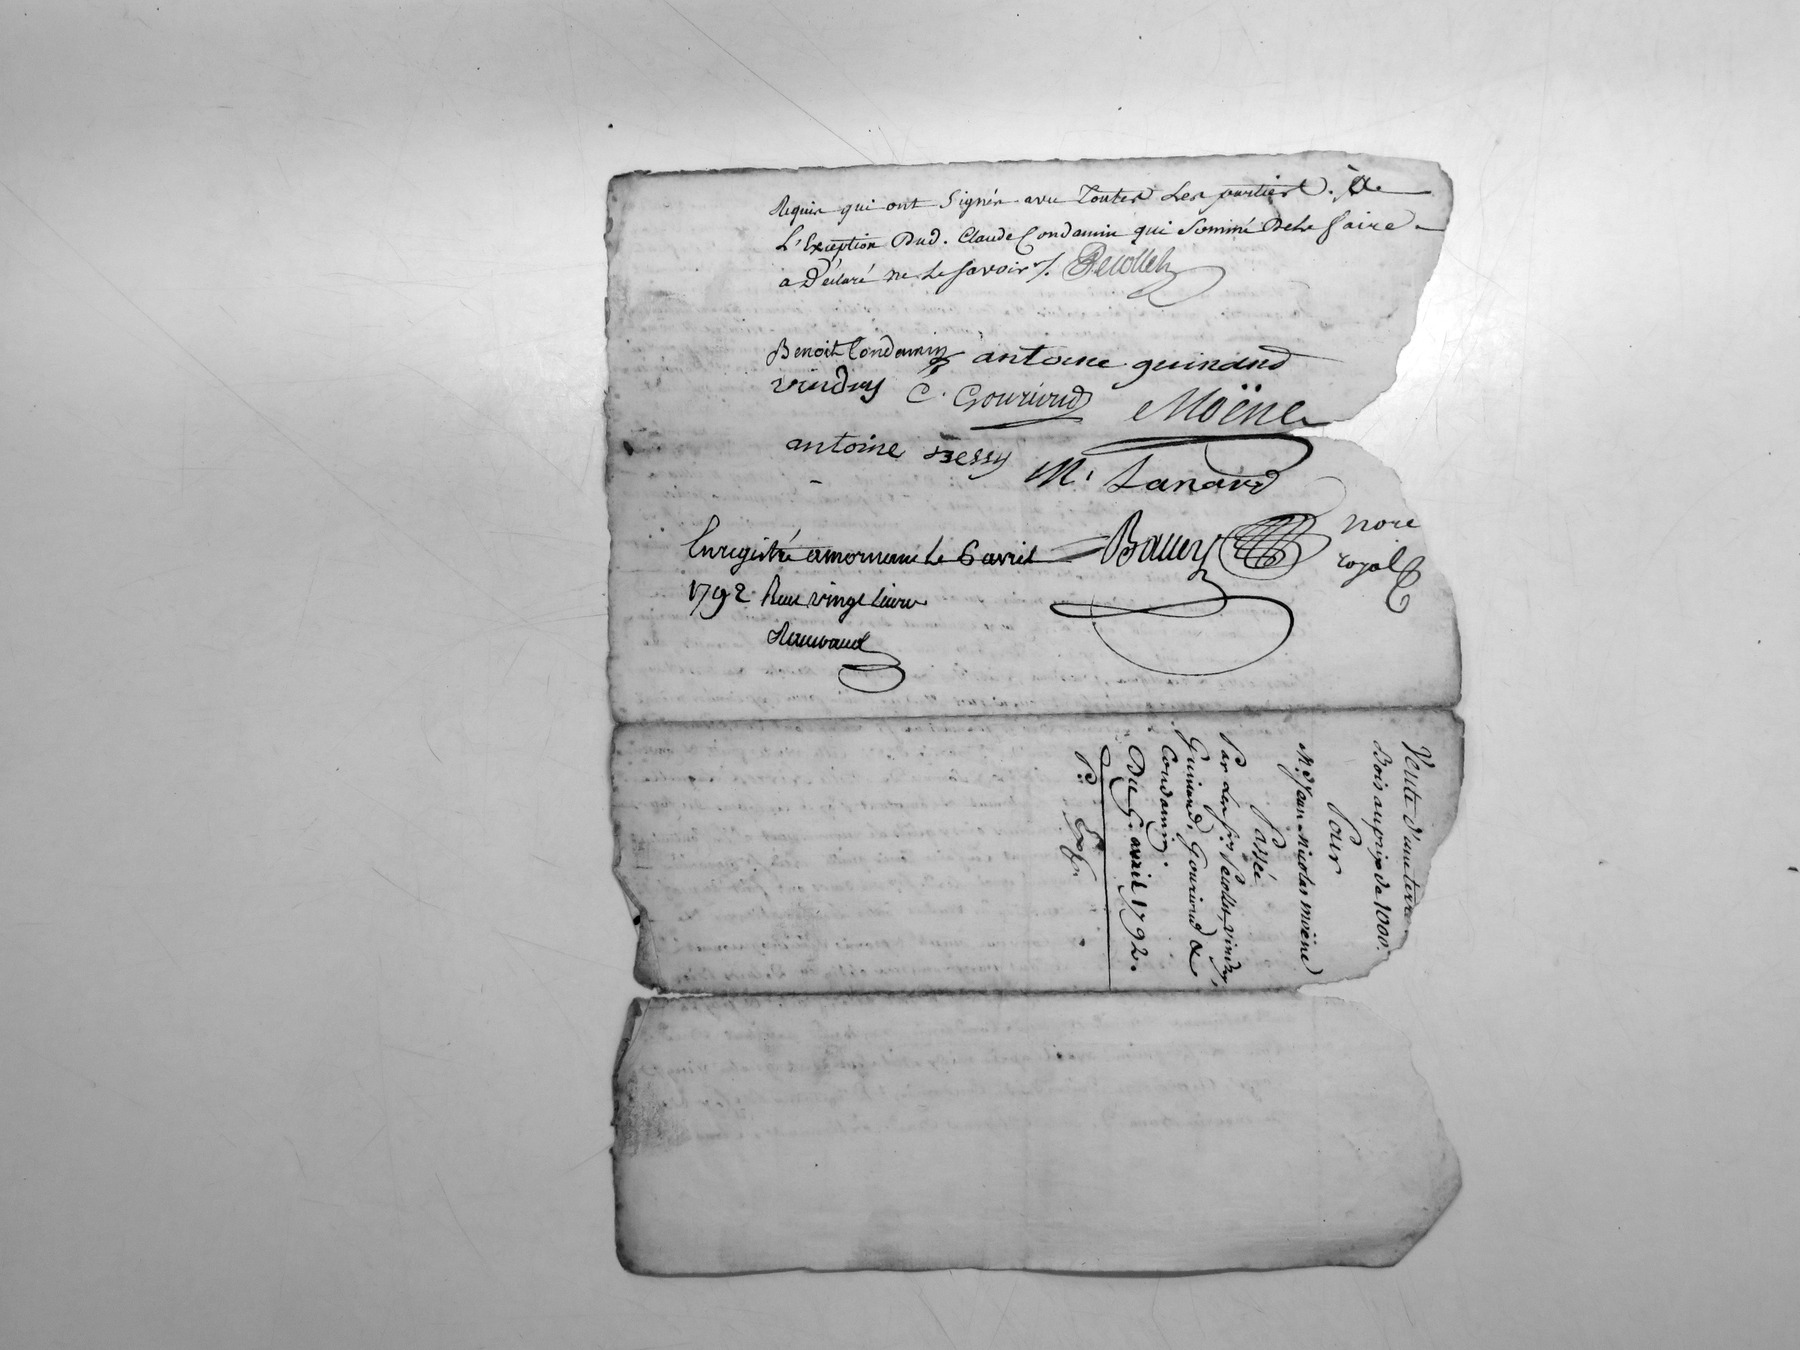 Requis qui ont Signés avec Toutes Les parties. à
L'Exception Dud. Claude Condamin qui Sommé De Le faire
a Déclaré ne Le Savoir /. Pecollet
Benoit Condamin antoine guinand
vindry C. Gourioud Moëne
antoine Bessy M. Lanard
Enregistré a mornant Le 6 avril
1792 Reçu vingt livres
Balley nore
royal
Vente d'une terre
Bois au prix de 1000.
Pour
Mr. Jean Nicolas moëne
Passée
Par Les Srs. Pecollet, vindry,
Guinand, Gourioud &
Condamin.
Du 6. avril 1792.